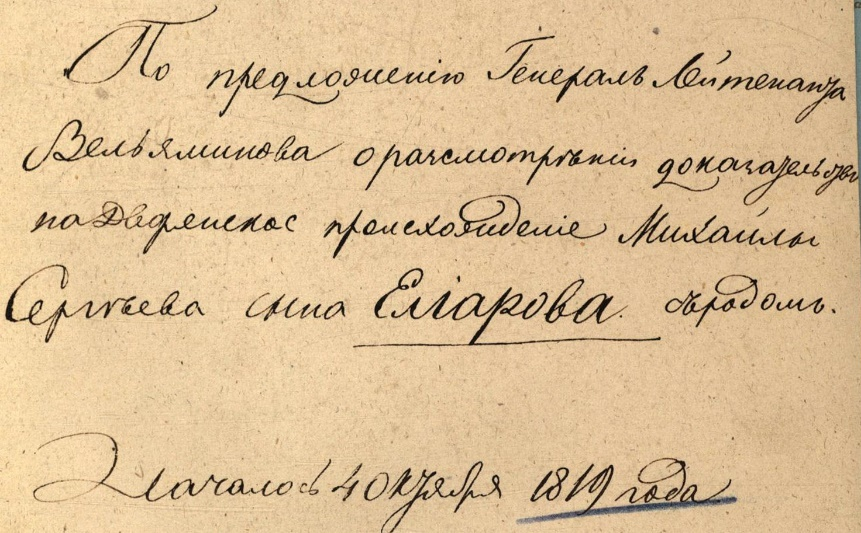 По предложенію Генералъ Лейтенанта
Вельяминова о разсмотрѣніи доказательствъ
на Дворянское происхожденіе Михайлы
Сергѣева сына Еліарова. съ родомъ.
Началось 4 Октября 1819 года